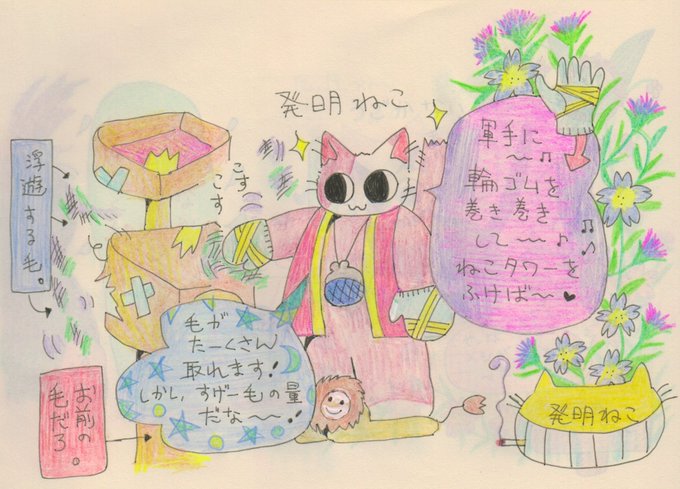 発明ねこ
軍手に
〜♫
輪ゴムを
巻き巻き
して〜〜♪
ねこタワーを
ふけば〜♥
こす
こす
浮遊する毛。
毛が
たーくさん
取れます!
しかし、すげー毛の量
だな〜〜!!
お前の
毛だろ。
発明ねこ